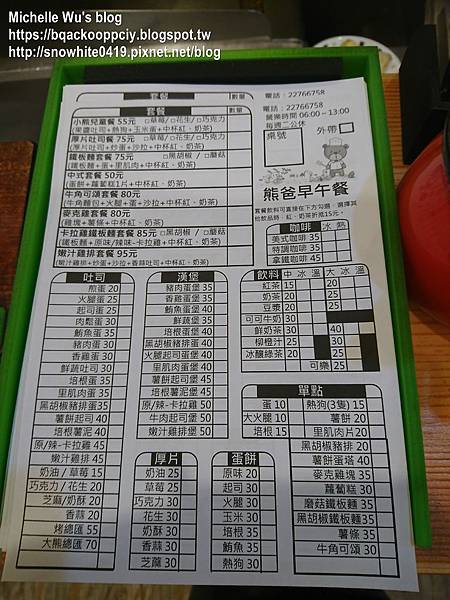 Michelle Wu's blog
https://bqackooppciy.blogspot.tw
http://snowhite0419.pixnet.net/blog
套餐 數量
電話：22766758
套餐 數量
小熊兒童餐 55元 □草莓/ □花生/ □巧克力
(果醬吐司+熱狗+玉米蛋+中杯紅、奶茶)
厚片吐司餐 75元 □草莓/ □花生/ □巧克力
(厚片吐司+炒蛋+沙拉+中杯紅、奶茶)
鐵板麵套餐 75元 □黑胡椒 / □蘑菇
(鐵板麵+蛋+里肌肉+中杯紅、奶茶)
中式套餐 50元
(蛋餅+蘿蔔糕1片+中杯紅、奶茶)
牛角可頌套餐 80元
(牛角麵包+火腿+蛋+沙拉+中杯紅、奶茶)
麥克雞套餐 80元
(雞塊+薯條+中杯紅、奶茶)
卡拉雞鐵板麵套餐 85元 □黑胡椒 / □蘑菇
(鐵板麵+原味/辣味-卡拉雞+中杯紅、奶茶)
嫩汁雞排套餐 95元
(嫩汁雞排+炒蛋+沙拉+香蒜吐司+中杯紅、奶茶)
電話：22766758
營業時間 06:00～13:00
每週二公休
桌號 外帶
熊爸早午餐
套餐飲料可直接在下方勾選，選擇其
他飲品時，紅、奶茶折抵15元。
咖啡 冰 熱
美式咖啡 35
特調咖啡 35
拿鐵咖啡 45
吐司
煎蛋 20
火腿蛋 25
起司蛋 25
肉鬆蛋 30
鮪魚蛋 35
豬肉蛋 30
香雞蛋 30
鮮蔬吐司 30
培根蛋 30
里肌肉蛋 30
黑胡椒豬排蛋 35
薯餅起司蛋 40
培根薯泥 40
原/辣-卡拉雞 45
嫩汁雞排 45
奶油 / 草莓 15
巧克力 / 花生 20
芝麻/奶酥 20
香蒜 20
烤總匯 55
大熊總匯 70
漢堡
豬肉蛋堡 35
香雞蛋堡 35
鮪魚蛋堡 40
鮮蔬堡 35
培根蛋堡 35
黑胡椒豬排蛋堡 40
火腿起司蛋堡 40
里肌肉蛋堡 40
薯餅起司堡 45
培根薯泥堡 45
原/辣-卡拉雞堡 50
牛肉起司堡 50
嫩汁雞排堡 50
飲料 中 冰 溫 大 冰 溫
紅茶 15 20
奶茶 20 25
豆漿 20 25
可可牛奶 30
鮮奶茶 30 40
柳橙汁 25 30
冰釀綠茶 20 25
可樂 25
單點
蛋 10 熱狗(3隻) 15
大火腿 10 薯餅 20
培根 15 里肌肉片 20
黑胡椒豬排 20
薯餅蛋塔 30
麥克雞塊 35
蘿蔔糕 30
蘑菇鐵板麵 35
黑胡椒鐵板麵 35
薯條 35
牛角可頌 30
厚片
奶油 25
草莓 25
巧克力 30
花生 30
奶酥 30
香蒜 30
芝麻 30
蛋餅
原味 20
起司 30
火腿 30
玉米 30
培根 35
鮪魚 35
熱狗 30